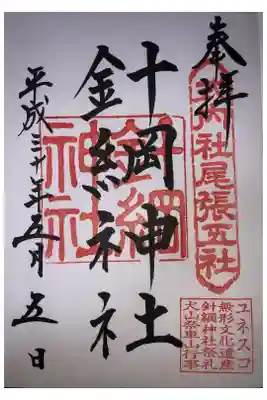 奉拝
内社尾張五社
針綱神社
針綱神社
平成三十年五月五日
ユネスコ
無形文化遺産
針綱神社祭礼
犬山祭車山行事